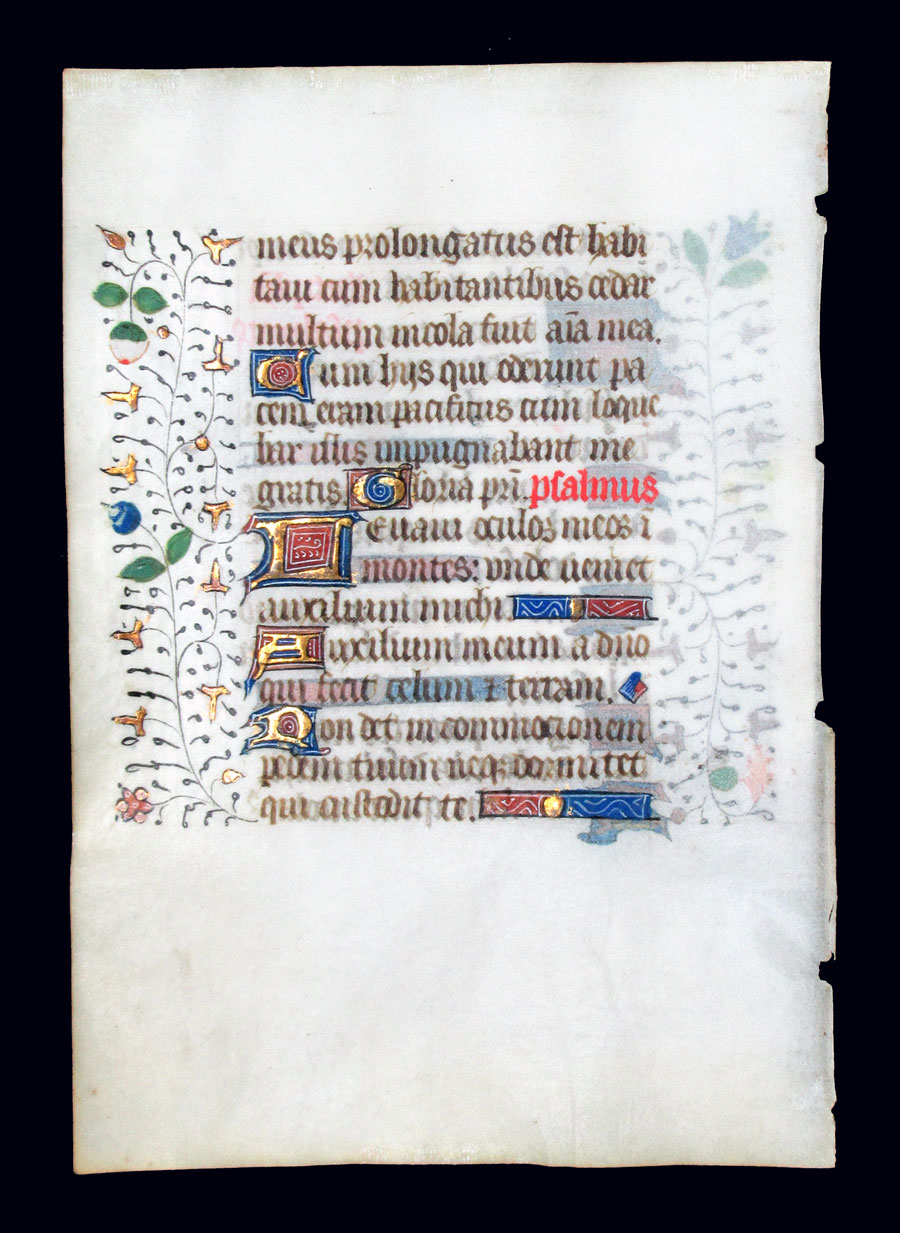 meus prolongatus est habi
taui cum habitantibus cedar
multum incola fuit aīa mea.
Cum hijs qui oderunt pa
cem eram pacificus cum loque
bar illis impugnabant me
gratis Gloria pr̄i. psalmus
Leuaui oculos meos ī
montes: vnde ueniet
auxilium michi
Auxilium meum a dn̄o
qui fecit celum ⁊ terram.
Non det in commocionem
pedem tuum neqꝫ dormitet
qui custodit te.